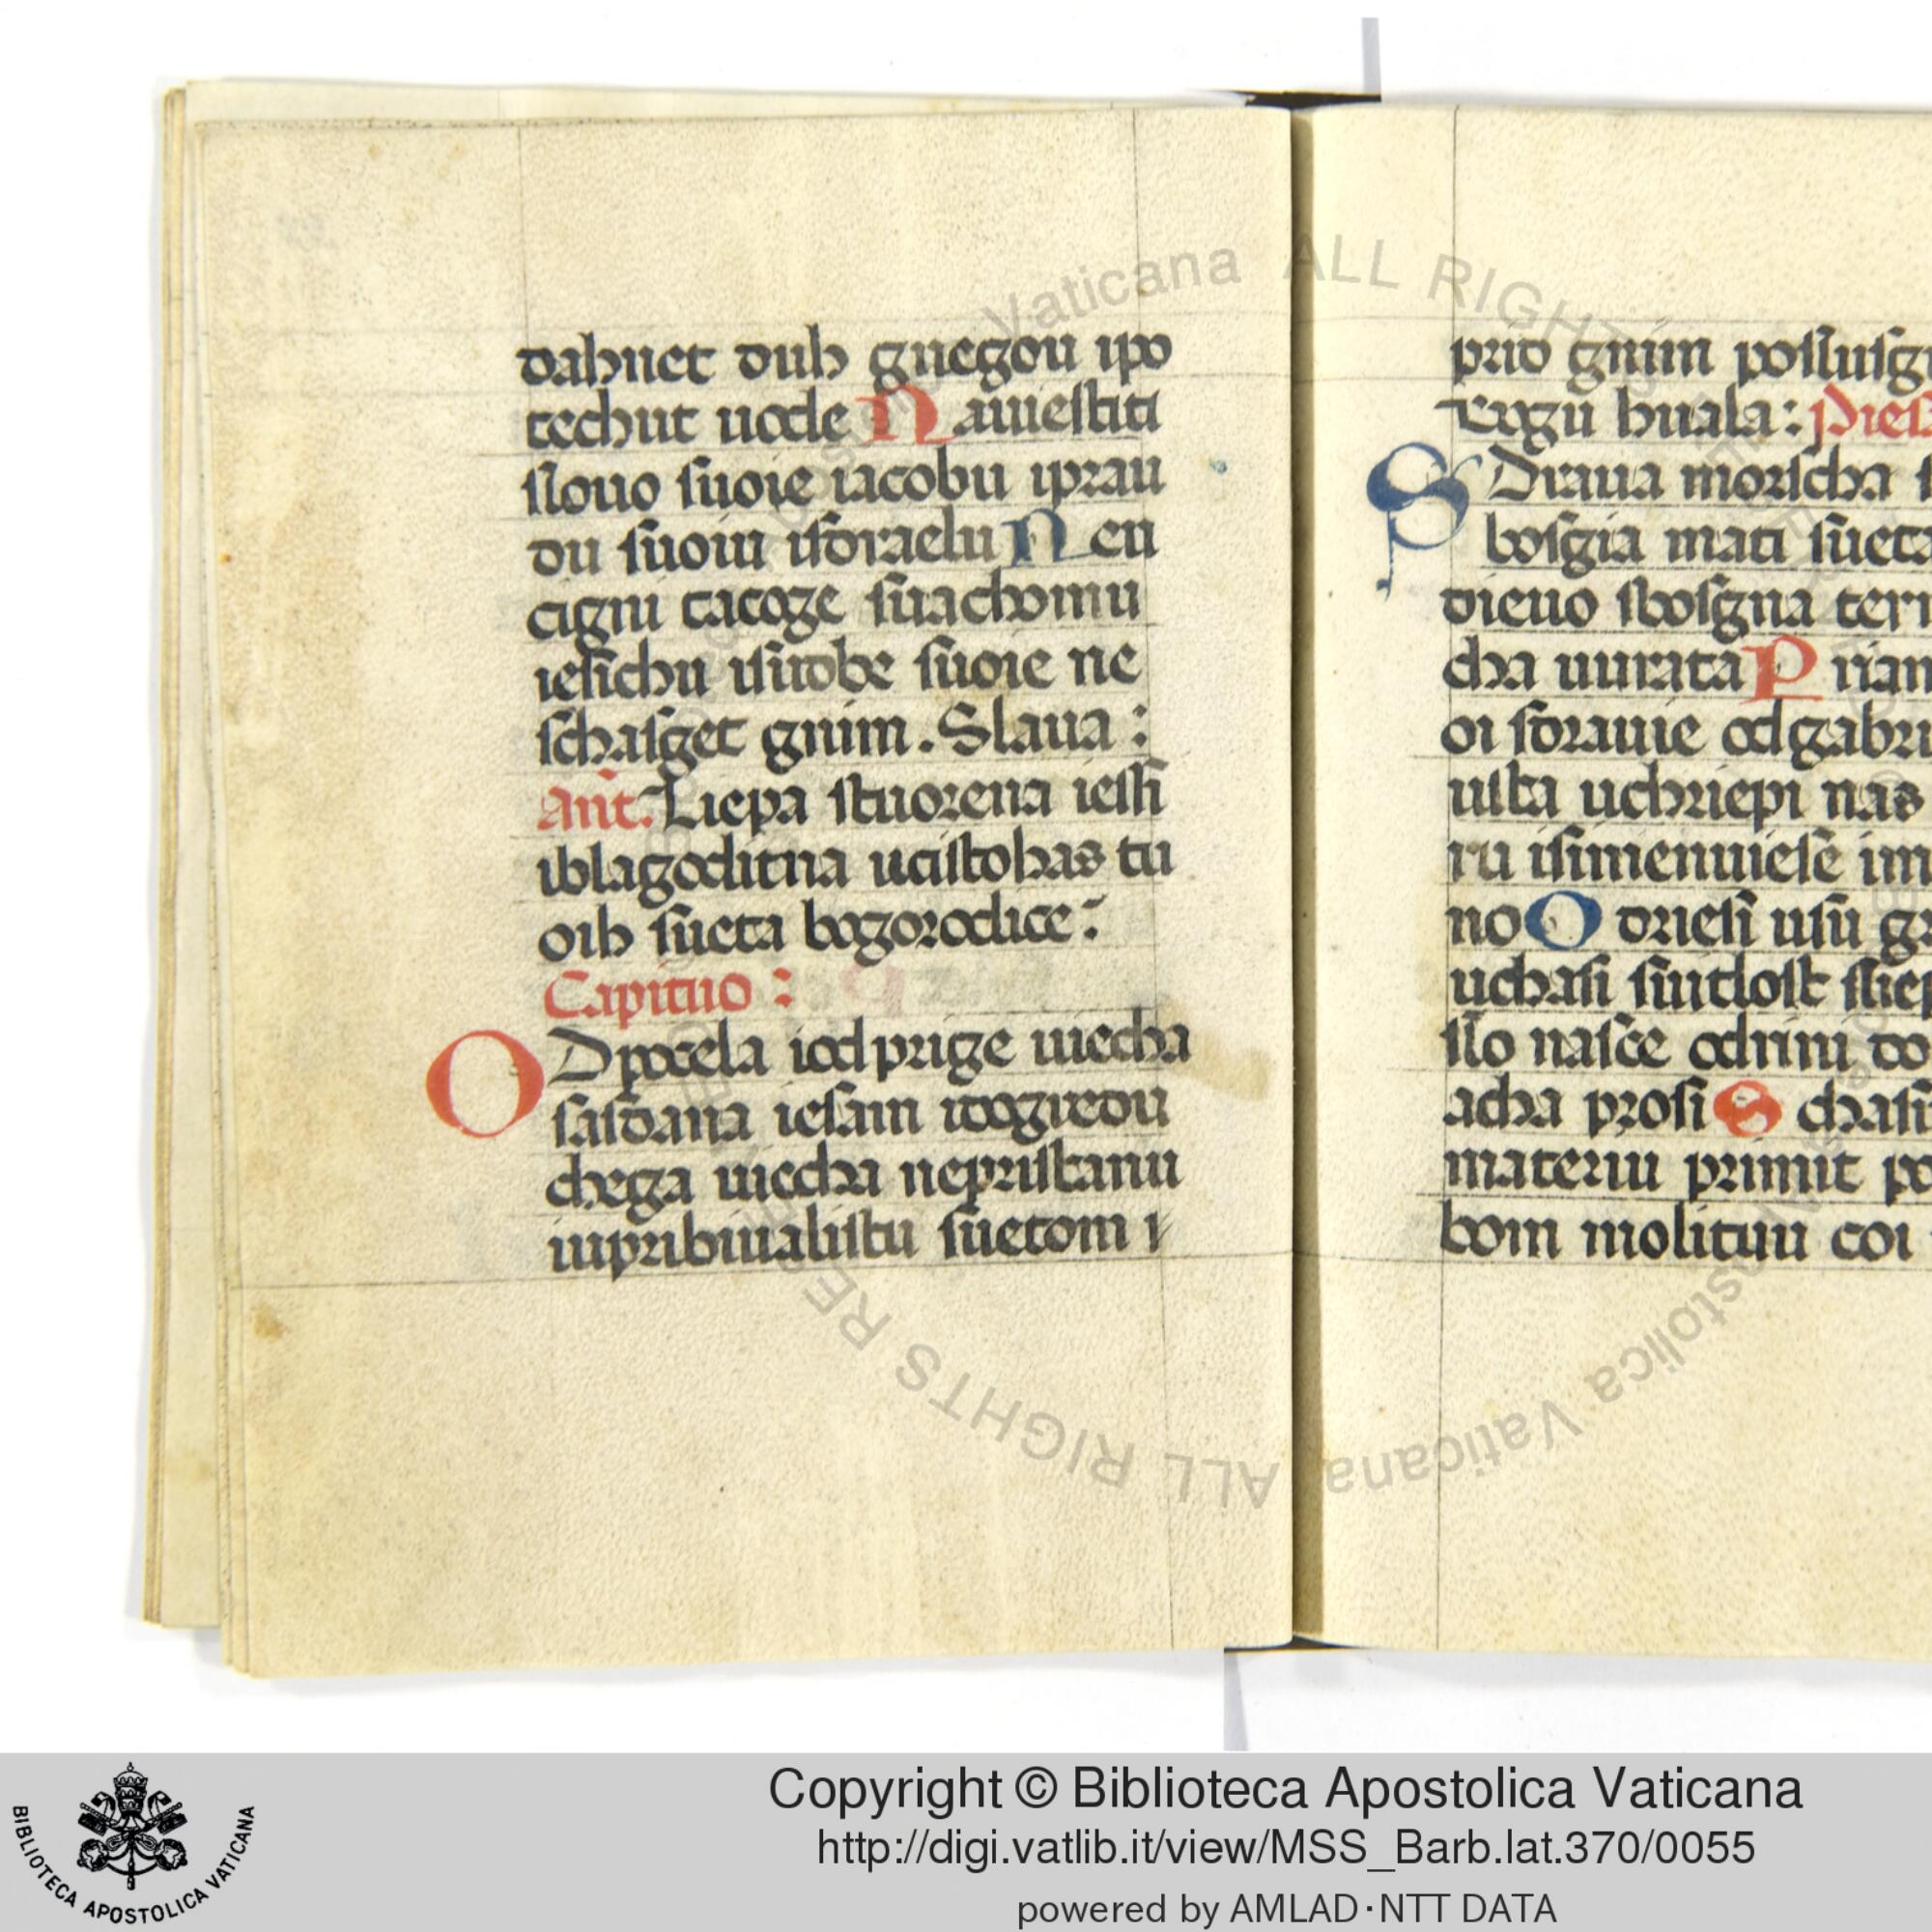 dahnet duh gnegou ipo
techut uode Nauiestiti
slouo suoie iacobu iprau
du suoiu isdraelu Nen
cigni tacoge suachomu
iesichu isudbe suoie ne
schasget gnim. Slaua:
Ant. Liepa stuorena iessi
iblagoditna ucistohas tu
oih sueta bogorodice:
Capituo:
ODpocela iod prige uiecha
sasdana iesam idogredu
chega uiecha nepristanu
iupribiualistu suetom i
prid gnim posluisg
tergu buala: Pies
SDraua morscha
bosgia mati sueta
dieuo sbosgna
cha uurata Prian
oi sdrauie od gabri
uista uchriepi nas
ru isimenuiese im
no Odriesi usu
uchasi suitlost
slo nasce odnimi
acha prosi S chasi
materiu primit
bom molituu coi
Vaticana ALL RIGHTS
ALL RIGHTS RE
Apostolica Vaticana
BIBLIOTECA APOSTOLICA VATICANA
Copyright © Biblioteca Apostolica Vaticana
http://digi.vatlib.it/view/MSS_Barb.lat.370/0055
powered by AMLAD·NTT DATA